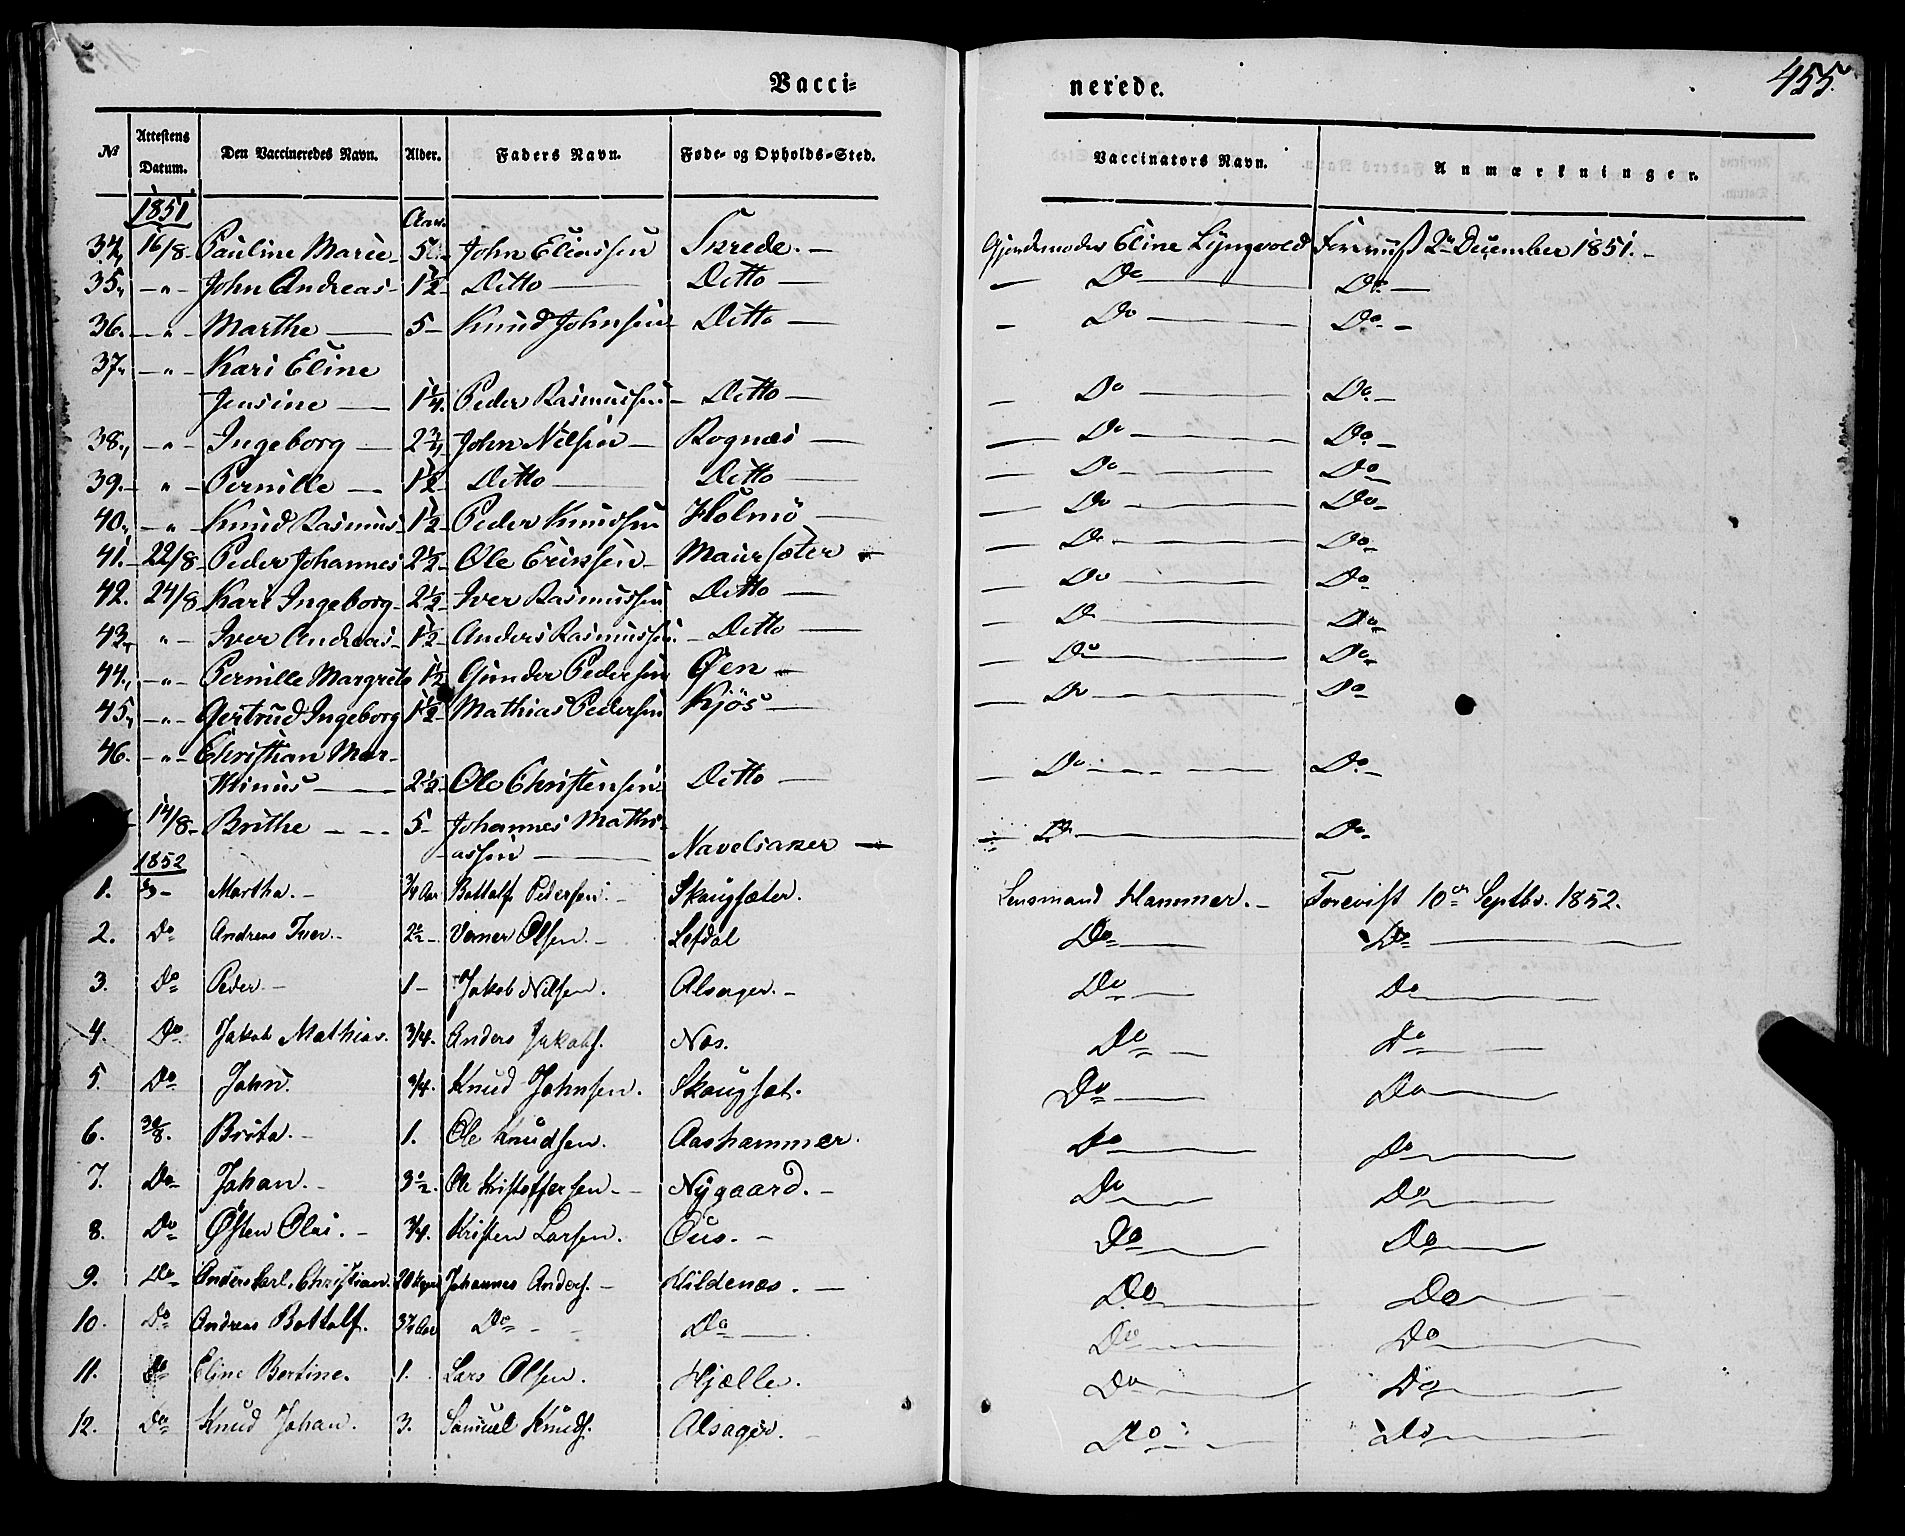 455.
Vacci- nerede.
No Attestens Datum. Den Vaccineredes Navn. Alder. Faders Navn. Føde- og Opholds-Sted. Vaccinators Navn. Anmærkninger.
1851 Aar.
34, 16/8 - Pauline Marie - 5 John Eliassen Skrede. - Gjordemoder Eline Lyngvold Forevist 2den December 1851. -
35, - " - John Andreas - 1½ Ditto - Ditto - - Do - Do -
36. - " - Marthe - 5 - Knud Johnsen - Ditto - - Do - Do -
37, - " - Kari Eline
Jensine - 1¼. Peder Rasmussen - Ditto - - Do - Do. -
38., - " - Ingeborg - 2¾ John Nilsen - Rognæs - - Do - Do. -
39. - " - Pernille - 1½ Ditto - Ditto - - Do - Do -
40, - " - Knud Rasmus - 1½ Peder Knudsen Holmö - - Do - Do -
41. - 22/8 - Peder Johannes 2½ - Ole Erikssen - Maursæter - - Do - Do -
42. 24/8 - Kari Ingeborg - 2½ - Iver Rasmussen Ditto - - Do - Do -
43, " - Iver Andreas - 1½ - Anders Rasmussen. - Ditto - - Do - Do -
44., - " - Pernille Margrete 1½ Gunder Pedersen Øen - - Do - Do -
45, - " - Gertrud Ingeborg 1½ - Mathias Pedersen Kjös - - Do - Do -
46. - " - Christian Mar-
thinus - 2½ - Ole Christensen Ditto - - Do - Do. -
14/8 - Brithe - - - 5 - Johannes Mathi-
assen - Navelsaker - - Do - Do -
1852
1. Martha. - ¾ Aar Bottolf Pedersen. - Skougsæter. Lensmand Hammer. - Forevist 10de Septbr. 1852.
2. Do Andreas Iver. - 2½ -. Verner Olsen. - Lefdal Do - Do -
3. Do Peder. - 1 - Jakob Nilsen. Alsager. - Do - Do -
4. Do Jakob Mathias. 3/4. Anders Jakobs. Nos. Do - Do -
5. Do John. 3/4. Knud Johnsen. Skougsæt. Do - Do -
6. 30/8. Brita. - 1. Ole Knudsen. Aashammer. Do - Do -
7. Do Johan. - 3½. Ole Kristoffersen. - - Nygaard. - Do - Do -
8. Do Østen Olai. - 3/4. Kristen Larsen. Ous. - Do - Do -
9. Do Anders Karl Christian. 20 Uger Johannes Anders. - Hildenæs. - Do - Do -
10. Do Andreas Bottolf. 3¾ Aar Do - - Do - Do - Do -
11. Do Eline Bertine. 1. Lars Olsen. Hjælle. Do - Do -
12. Do Knud Johan. 3. Samuel Knuds. Alsager. - Do - Do -